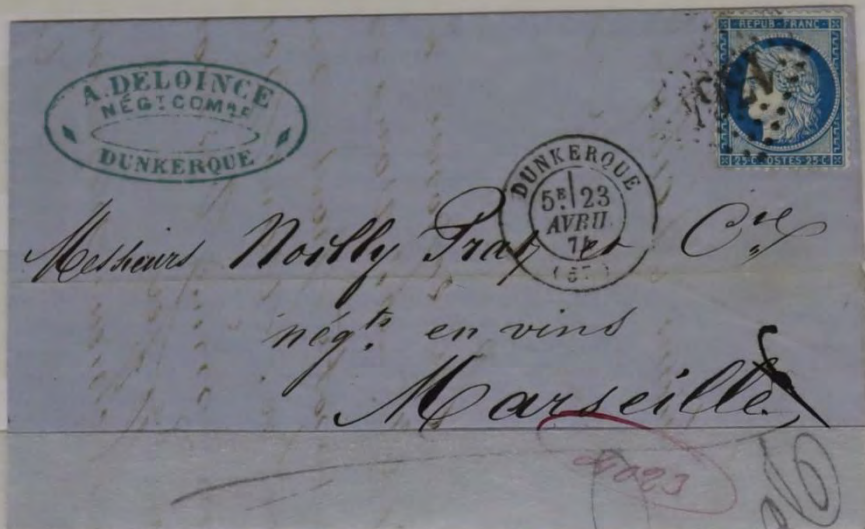 A. DELOINCE
NÉGT COMRE
DUNKERQUE
REPUB · FRANC
25 C. POSTES 25 C.
DUNKERQUE
5E 23
AVRIL
74
Messieurs Noilly Prat et Cie
négts en vins
Marseille